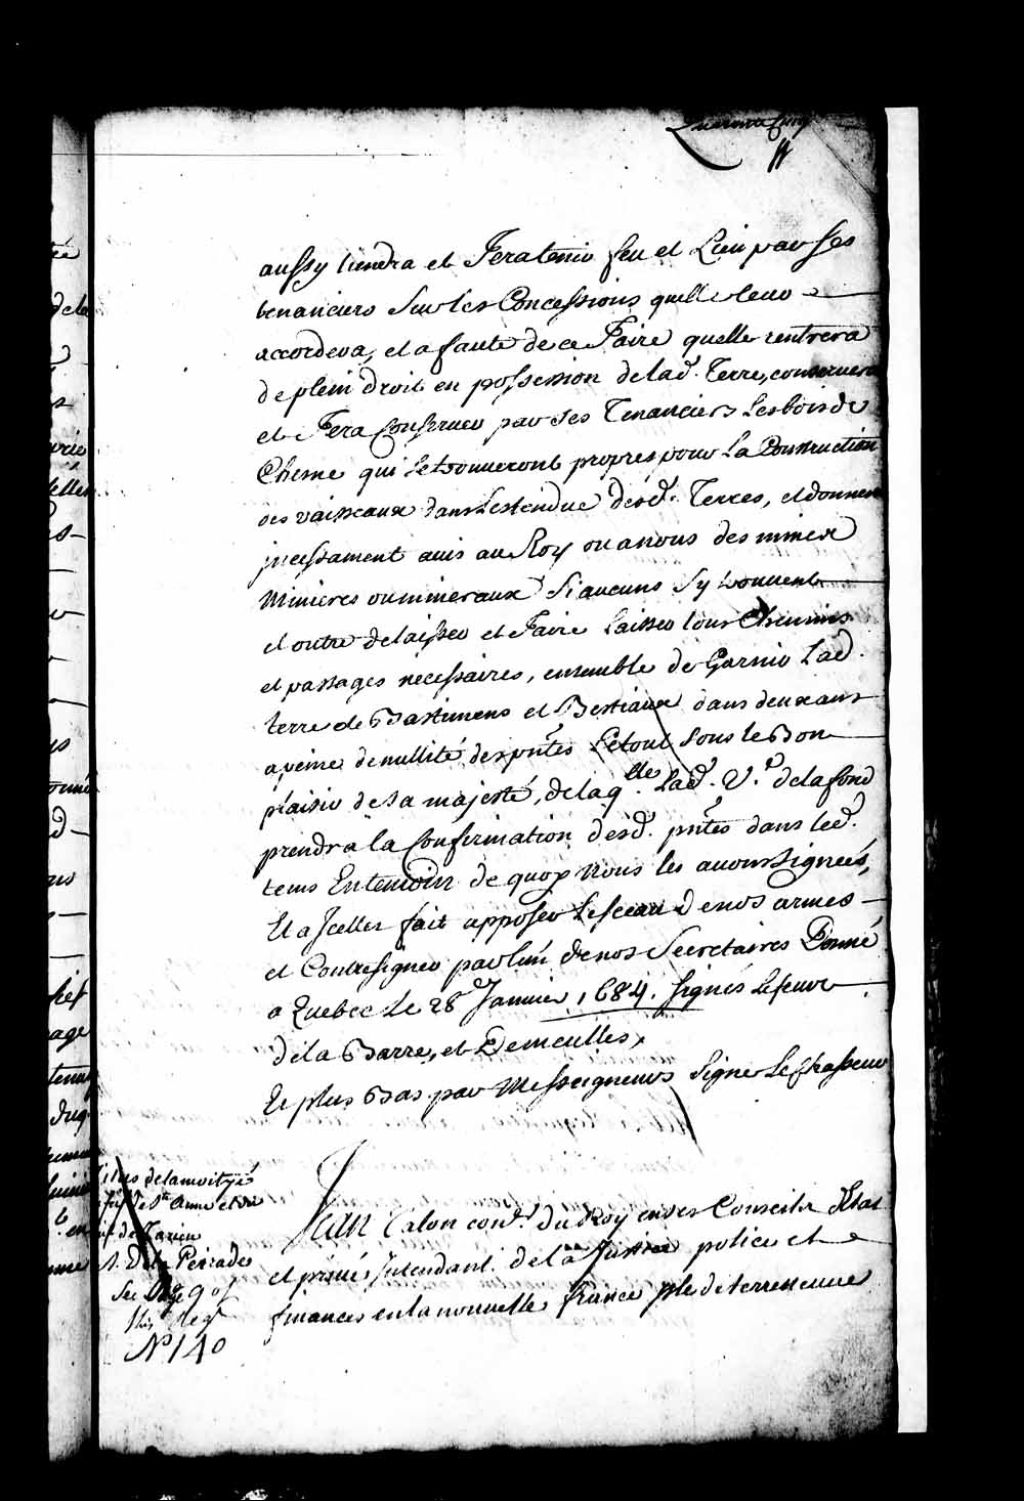 Quarante Cinq
aussy tiendra et Fera tenir feu et Lieu par ses
tenanciers Sur les Concessions quelle leur
accordera, et a faute de ce Faire quelle rentrera
de plein droit en possession de lad. Terre, conservera
et Fera Conserver par ses Tenanciers Les bois de
Chesne qui se trouveront propres pour La Construction
des vaisseaux dans Lestendue desd. Terres, et donnera
incessament avis au Roy ou a nous des mines
Minieres ou mineraux Si aucuns Sy trouvent
et outre delaisser et Faire Laisser tous Chemins
et passages necessaires, ensemble de Garnir Lad.
terre de Bastimens et Bestiaux dans deux ans
a peine de nullité des pntes Le tout sous le Bon
plaisir de sa majesté, de laqlle. Lad. V.e delafond
prendra la Confirmation desd. pntes dans led.
tems En temoin de quoy Nous les avons Signeés,
Et a Icelles fait apposer Le sceau de nos armes
et Contresigner par lun de nos Secretaires Donné
a Quebec Le 28 Janvier 1684. Signés Lefevre
de la Barre, et Demeulles,
Et plus Bas par Messeigneurs Signer Le Chasseur
Titres de la moityé
fief de Ste Anne
de Tarieu
de la Perrade
See Page 9 of
this Reg
No 140
Jean Talon conr. du Roy en ses Conseils d'Estat
et privé Intendant de la Justice police et
finances en la nouvelle france Isle de terre neuve